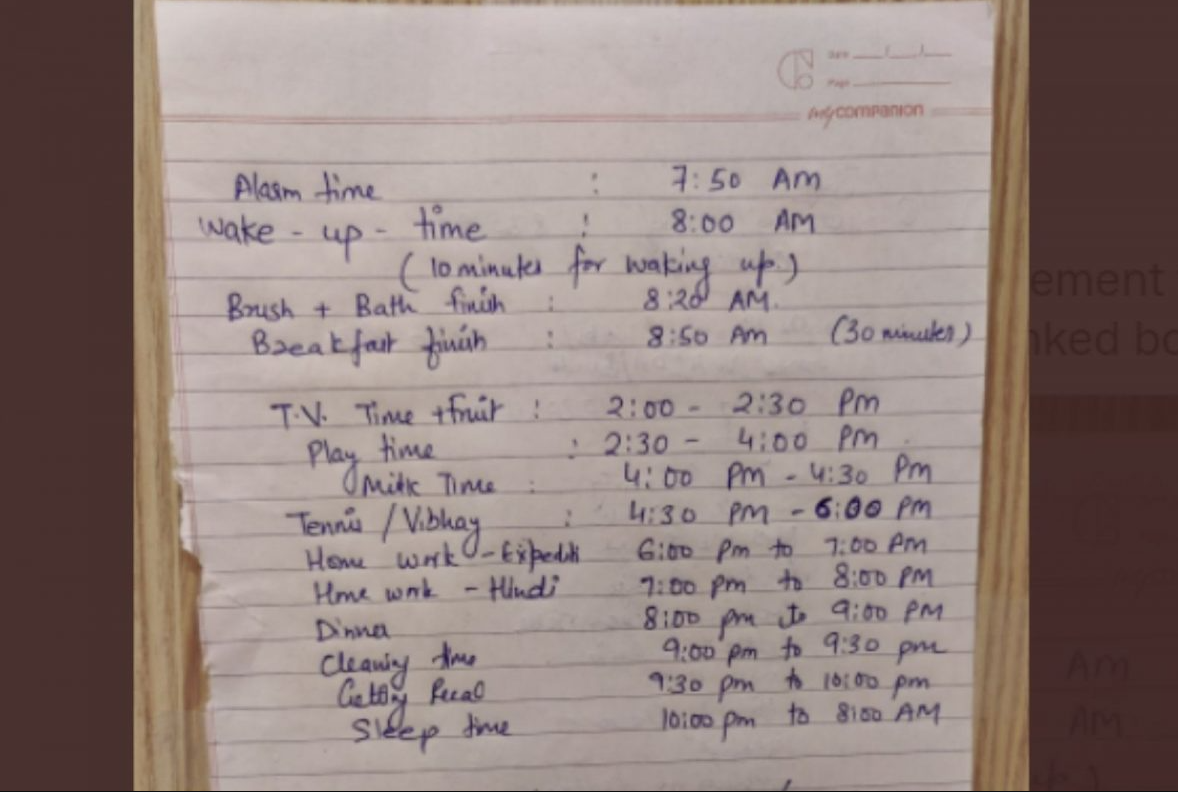 Date / /
Page
mycompanion
Alarm time : 7:50 AM
Wake - up - time : 8:00 AM
(10 minutes for waking up.)
Brush + Bath finish : 8:20 AM.
Breakfast finish : 8:50 AM (30 minutes)
T.V. Time + fruit : 2:00 - 2:30 PM
Play time : 2:30 - 4:00 PM
Milk Time : 4:00 PM - 4:30 PM
Tennis / Vibhay : 4:30 PM - 6:00 PM
Home work - 6:00 Pm to 7:00 PM
Home work - Hindi 7:00 pm to 8:00 PM
Dinner 8:00 pm to 9:00 PM
Cleaning time 9:00 pm to 9:30 pm
9:30 pm to 10:00 pm
Sleep time 10:00 pm to 8:00 AM
ement
nked bo
Am
AM